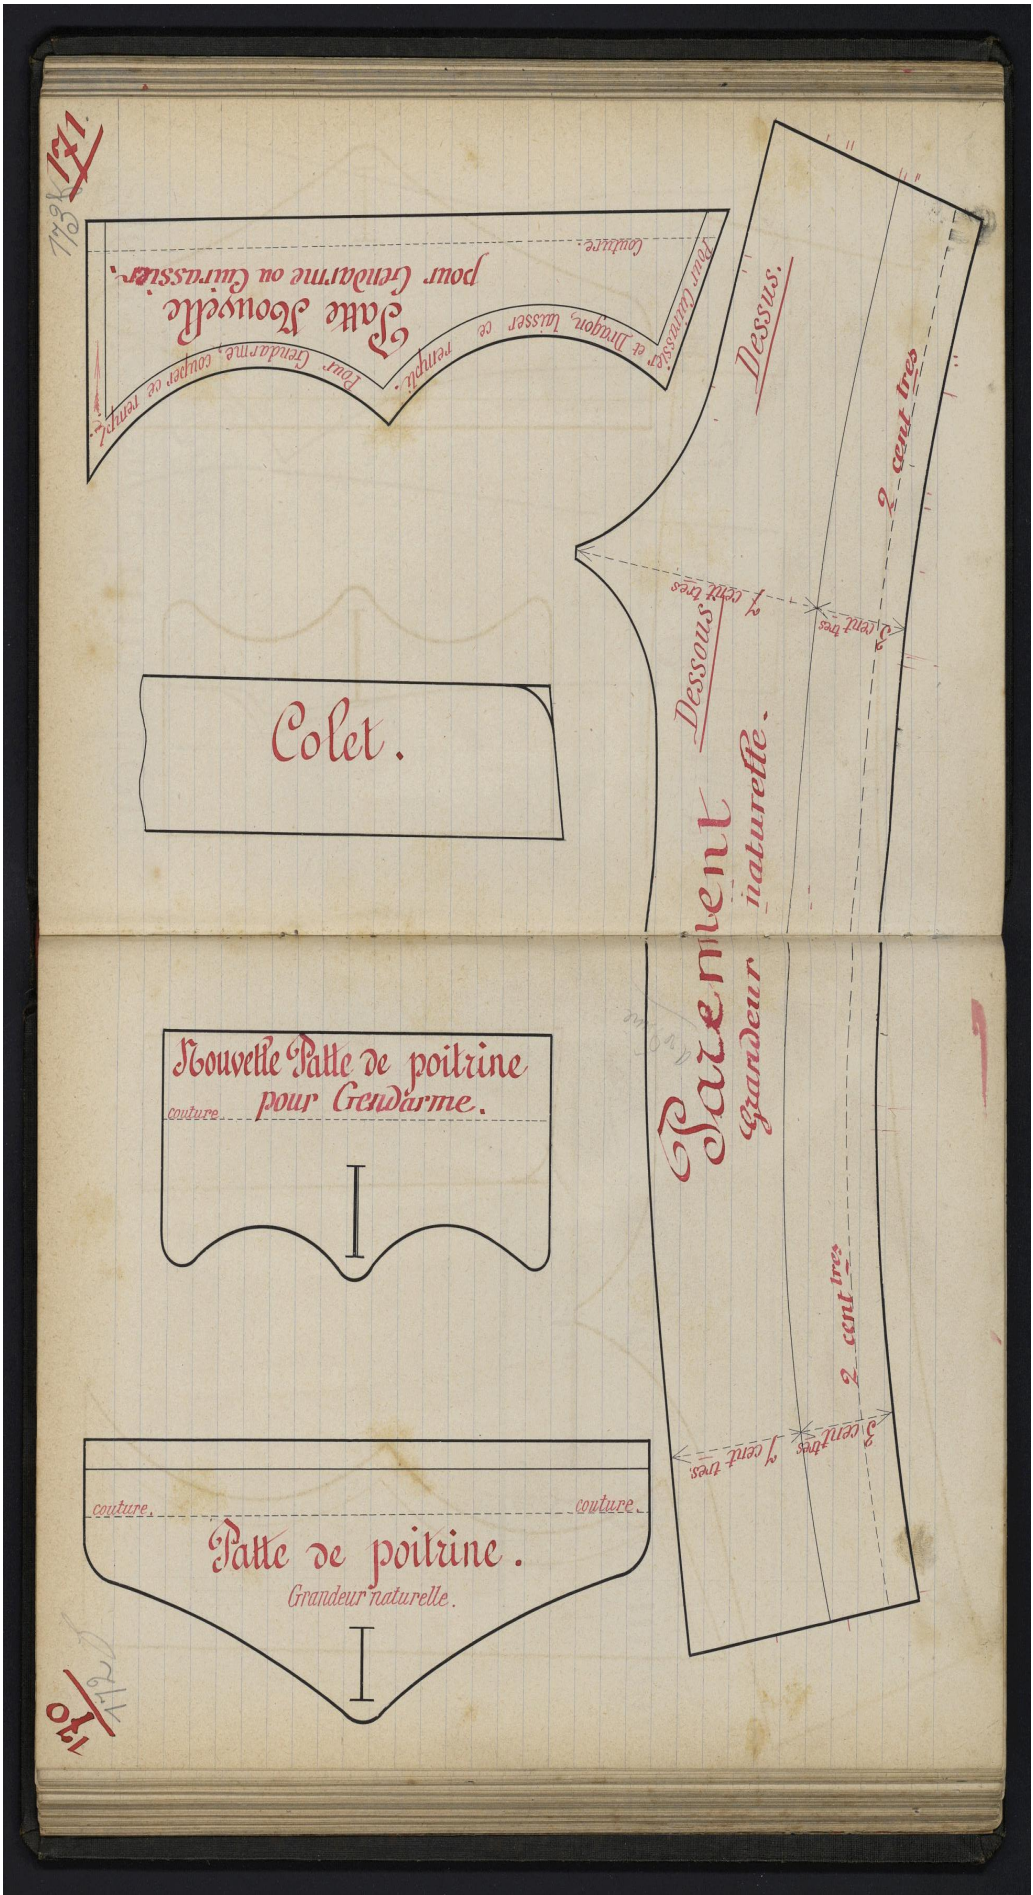 171.
173
Couture.
Patte Nouvelle
pour Gendarme ou Cuirassier.
Pour Gendarme, couper ce rempli.
Pour Cuirassier et Dragon, laisser ce rempli.
Dessus.
2 cent tres
7 cent tres
3 cent tres
Dessous
Colet.
Parement
Grandeur naturelle.
Nouvelle Patte de poitrine
pour Gendarme.
couture
2 cent tres
7 cent tres.
3 cent tres
couture.
couture.
Patte de poitrine.
Grandeur naturelle.
172
170